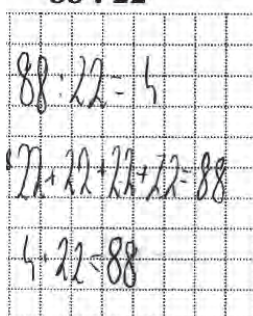 88 : 22 = 4
22 + 22 + 22 + 22 = 88
4 · 22 = 88